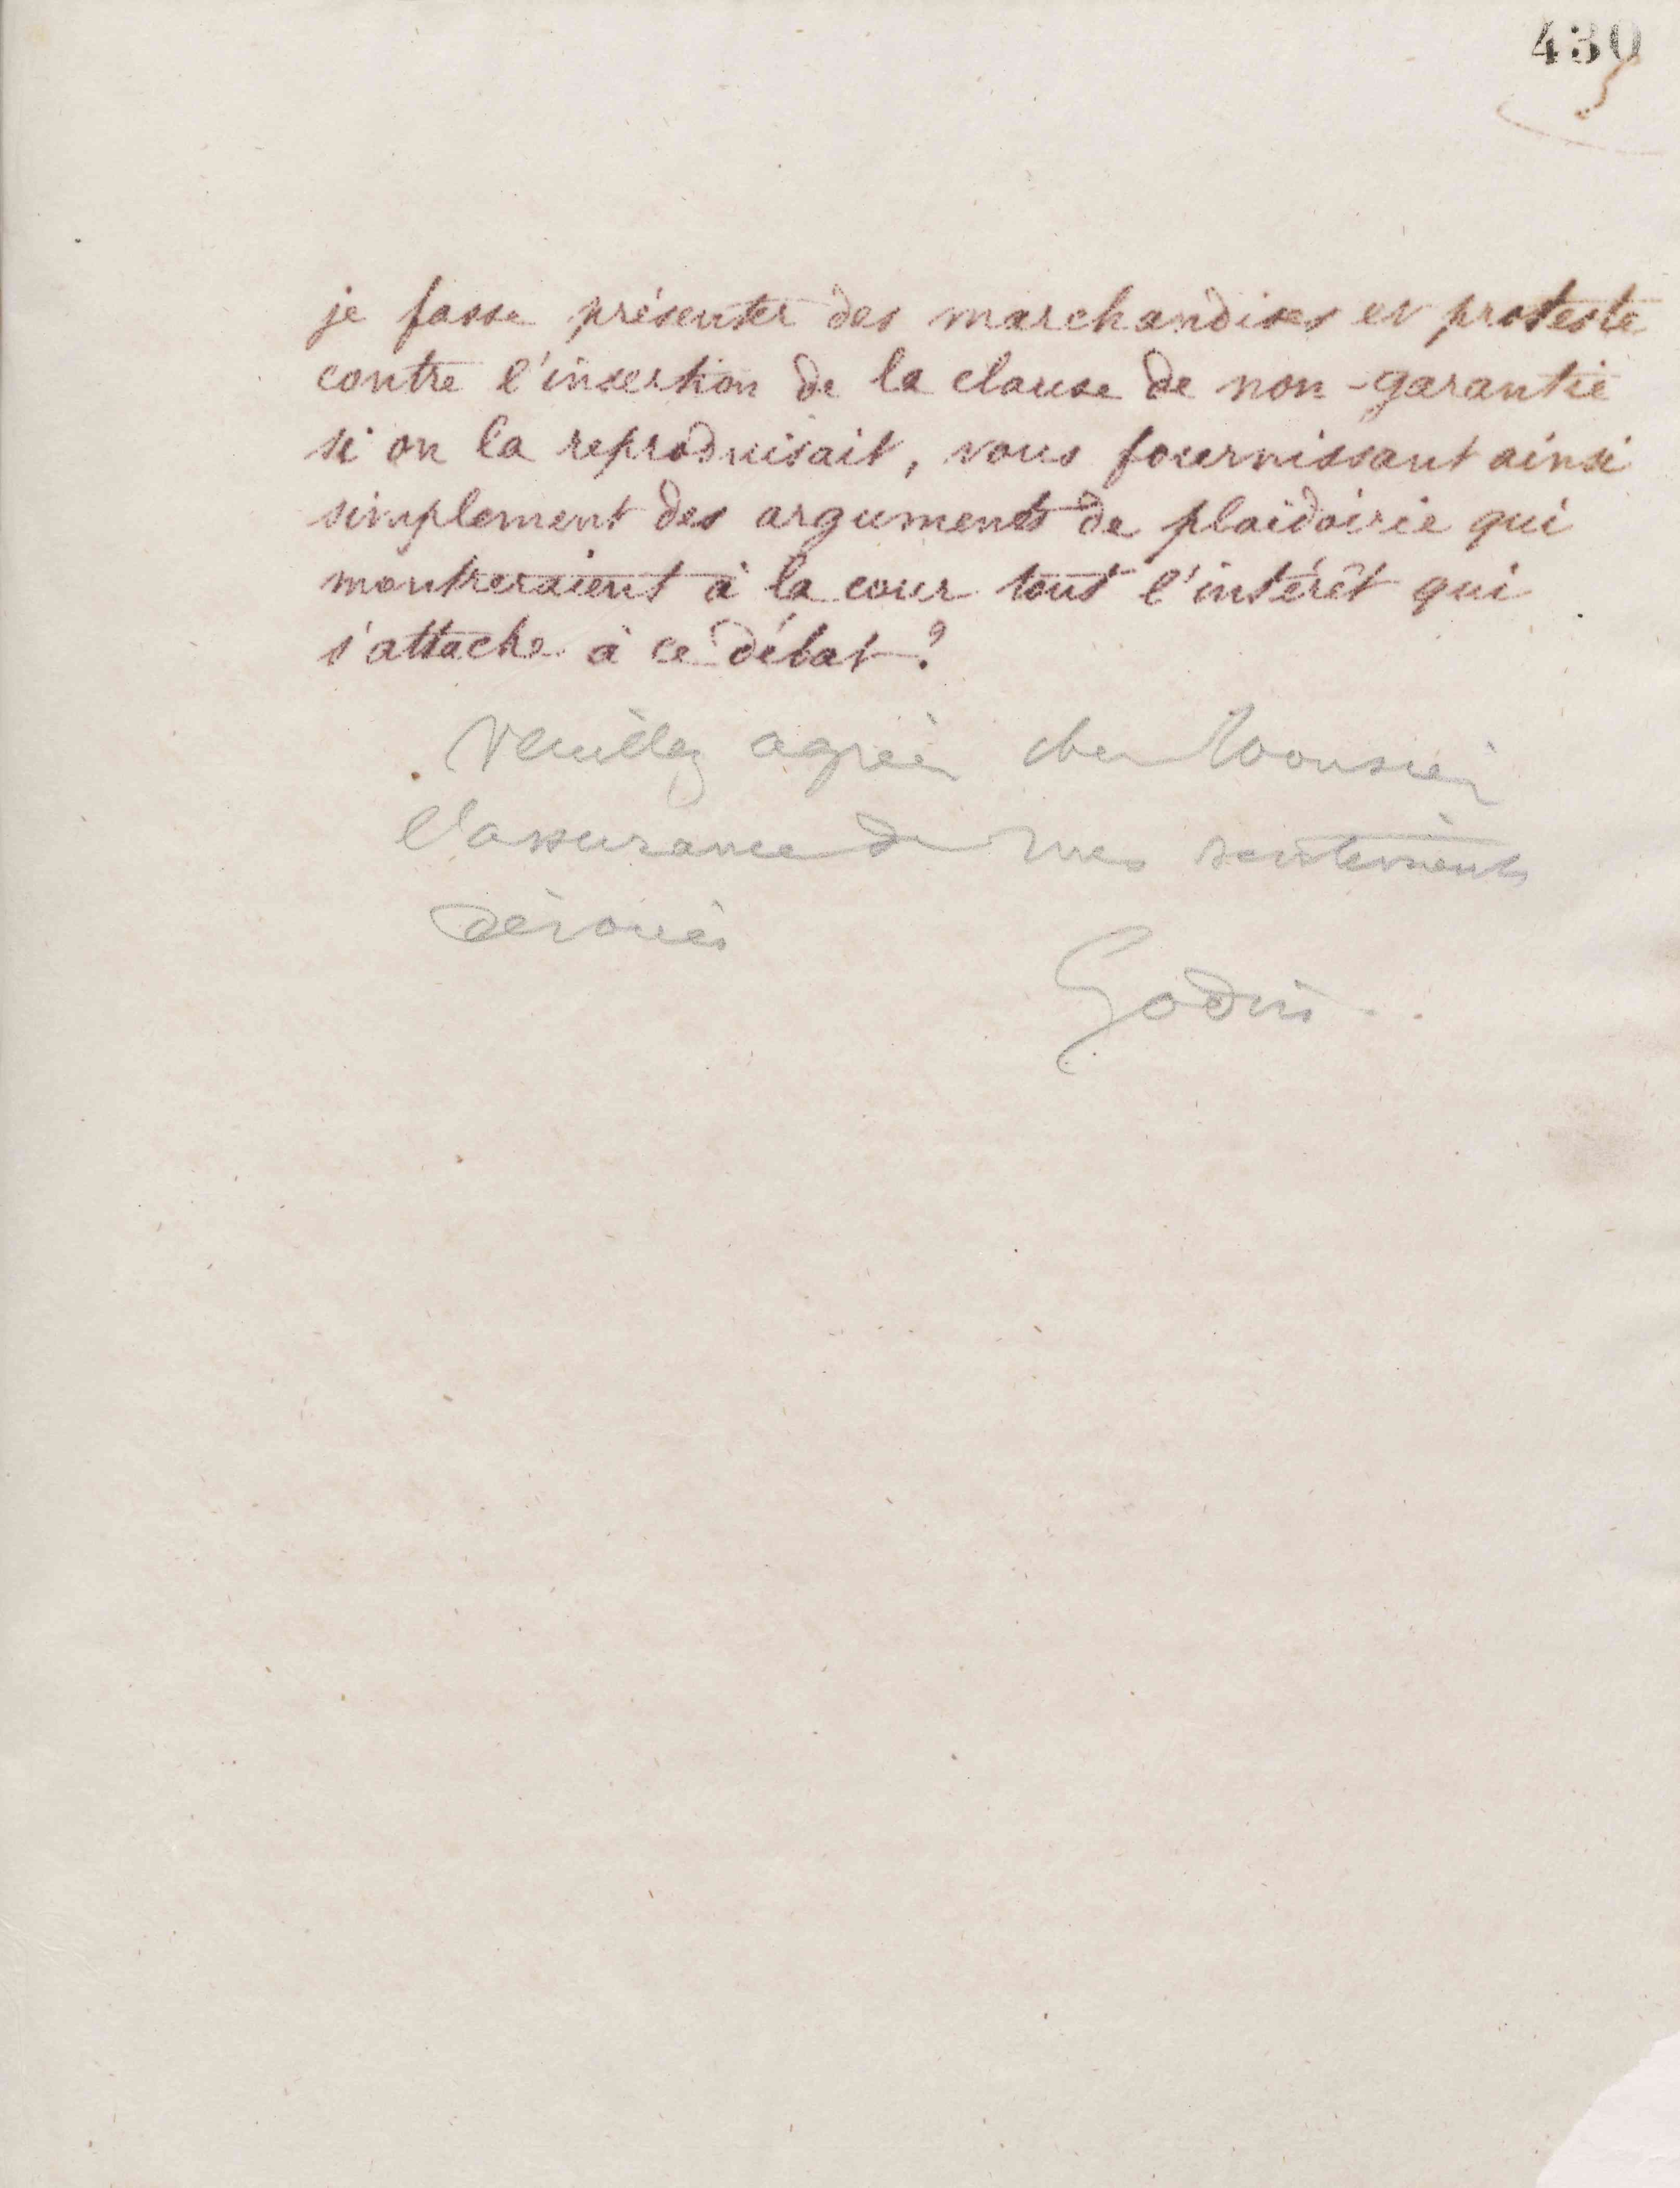 430
je fasse présenter des marchandises et proteste
contre l'insertion de la clause de non-garantie
si on la reproduisait, vous fournissant ainsi
simplement des arguments de plaidoirie qui
montreraient à la cour tout l'intérêt qui
s'attache à ce débat ?
Veuillez agréer cher Monsieur
l'assurance de mes sentiments
dévoués
Godin